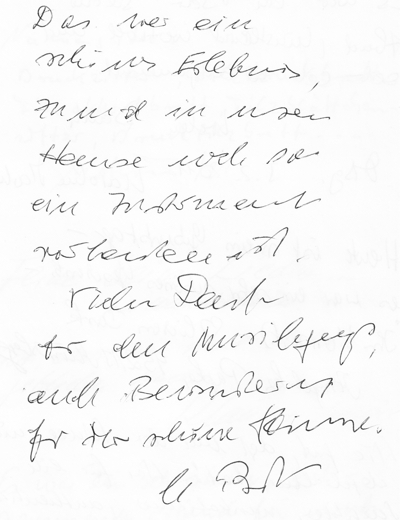 Das war ein
schönes Erlebnis,
zumal in unserem
Hause noch so
ein Instrument
vorhanden ist.
Vielen Dank
für den Musikgenuß,
auch Bewunderung
für Ihr schöne Stimme.